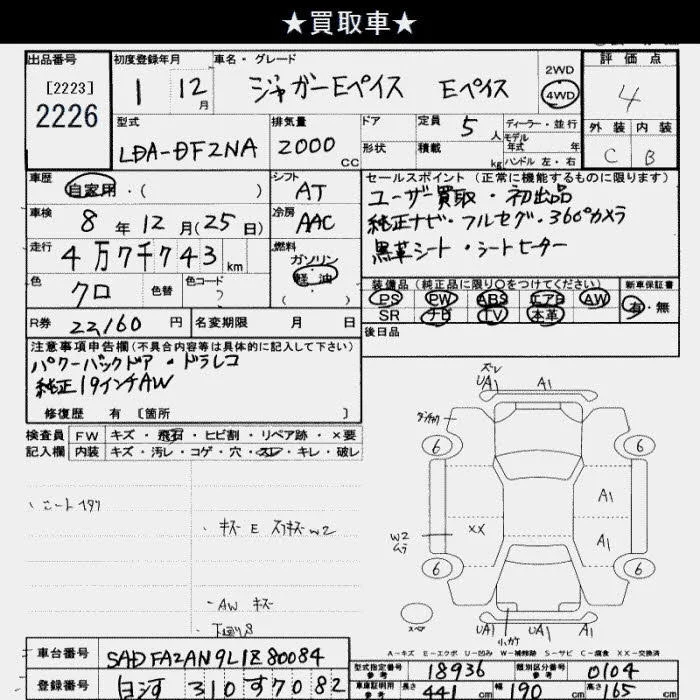 ★買取車★
出品番号
[2223]
2226
初度登録年月
1 12月
車名・グレード
ジャガーEペイス Eペイス
2WD
4WD
評価点
4
外装 内装
C B
型式
LDA-DF2NA
排気量
2000 CC
ドア
形状
定員 5 人
積載 kg
ディーラー・並行
モデル年式 年
ハンドル 左・右
車歴
自家用・( )
シフト
AT
セールスポイント (正常に機能するものに限ります)
ユーザー買取・初出品
純正ナビ・フルセグ・360°カメラ
黒革シート・シートヒーター
車検
8年 12月(25日)
冷房
AAC
走行
4万7千743 km
燃料
ガソリン
軽油
( )
色
クロ
色替
色コード
装備品 (純正品に限り○をつけてください)
PS PW ABS エアB AW
SR ナビ TV 本革
新車保証書
有・無
R券 22,160 円
名変期限 月 日
後日品
注意事項申告欄 (不具合内容等は具体的に記入して下さい)
パワーバックドア・ドラレコ
純正19インチAW
修復歴 有 〔箇所 〕
検査員記入欄
FW キズ・飛石・ヒビ割・リペア跡・×要
内装 キズ・汚レ・コゲ・穴・スレ・キレ・破レ
キズ E スリキズ W2
AW キズ
スレ
UA1 A1
6 6
A1
W2
ムラ
XX
A1
6 6
スペア
UA1 UA1 A1
A-キズ E-エクボ U-凹み W-補修跡 S-サビ C-腐食 XX-交換済
車台番号
SADFA2AN9L1Z80084
登録番号
310 す 7082
型式指定番号 参考
18936
類別区分番号 参考
0104
車庫証明用 参考
長さ 441 cm
幅 190 cm
高 165 cm